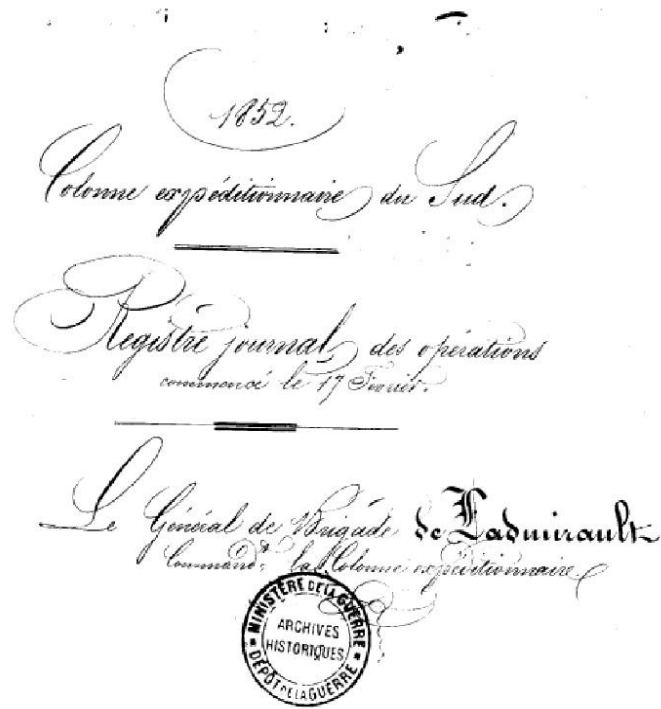 1852.
Colonne expéditionnaire du Sud.
Registre journal, des opérations
commencé le 17 Fevrier.
Le Général de Brigade de Ladmirault
Command.t la Colonne expéditionnaire
MINISTÈRE DE LA GUERRE
ARCHIVES
HISTORIQUES
DÉPÔT DE LA GUERRE